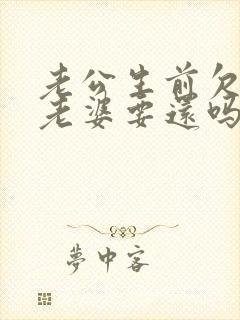 老公生前欠
老婆要還嗎
夢中客